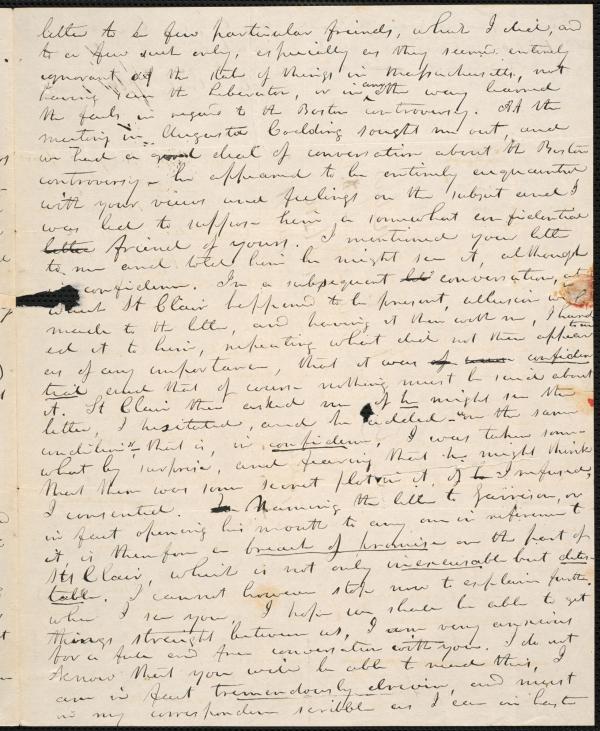 letter to a few particular friends, which I did, and
to a few such only, especially as they seemed entirely
ignorant of the state of things in Massachusetts, not
having seen the Liberator, or in any oth way learned
the facts in regard to the Boston controversy. At the
meeting in Augusta Codding sought me out, and
we had a good deal of conversation about the Boston
controversy - he appeared to be entirely acquainted
with your views and feelings on the subject and I
was led to suppose him a somewhat confidential
letter friend of yours. I mentioned your lette
to me and told him he might see it, although
confidence. In a subsequent conversation, at
which St Clair happened to be present, allusion was
made to the lette, and having it then with me, I hand
ed it to him, repeating what did not then appear to me
as of any importance, that it was confiden
tial and that of course nothing must be said about
it. St Clair then asked me if he might see the
letter, I hesitated, and he added "on the same
conditions" that is, in confidence, I was taken some
what by surprise, and fearing that he might think
that there was some secret plot in it, if I refused,
I consented. Naming the lette to Garrison, or
in fact opening his mouth to any one in reference to
it is therefore a breach of promise on the part of
St Clair, which is not only inexcusable but detes-
table. I cannot however stop now to explain further.
When I see you, I hope we shall be able to get
things straight between us, I am very anxious
for a full and free conversation with you. I do not
know that you will be able to read this, I
am in fact tremendously driven, and must
in my correspondence scribble as I can in haste